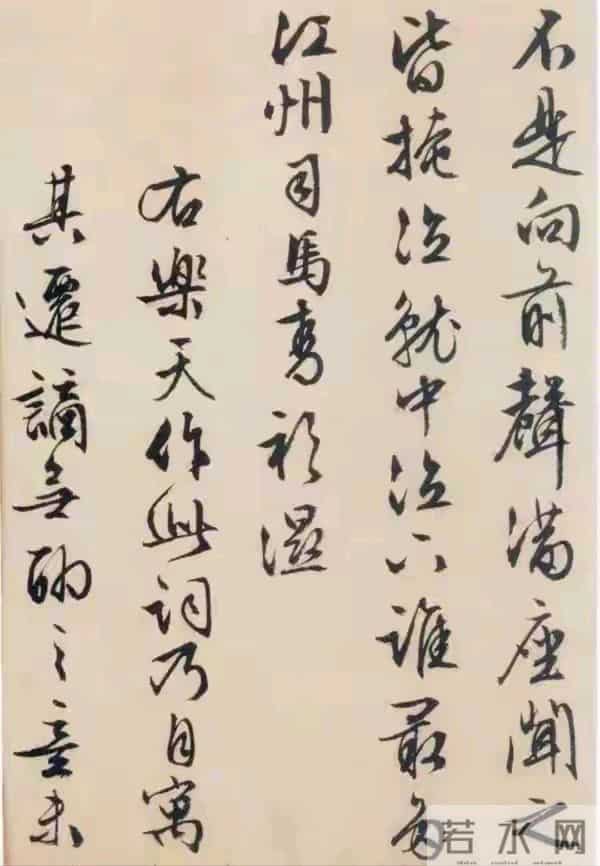 不是向前聲滿座聞之
皆掩泣就中泣下誰最多
江州司馬青衫濕
右樂天作此詞乃自寓
其遷謫無聊之意未
若水网